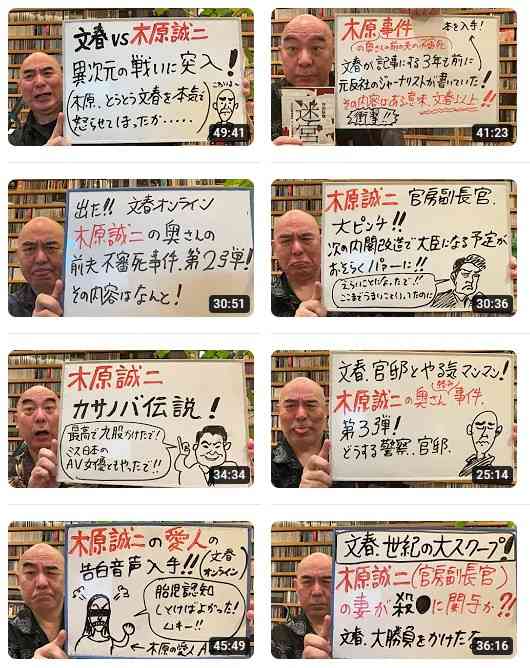 文春 vs 木原誠二
異次元の戦いに突入!
木原、とうとう文春を本気で
怒らせてしまったか.....
49:41
木原事件 本を入手!
(の奥さんの前の夫の不審死)
文春が記事にする3年も前に
元反社のジャーナリストが書いていた!!
その内容はある意味、文春以上!!
衝撃!!
迷宮
41:23
出た!! 文春オンライン
木原誠二の奥さんの
前夫不審死事件、第2弾!
その内容はなんと!
30:51
木原誠二 官房副長官、
大ピンチ!!
次の内閣改造で大臣になる予定が
おそらくパァーに!!
えらいことになったで!!
ここまでうまいこといってたのに
30:36
木原誠二
カサノバ伝説!
最高で九股かけたで!
ミス日本の
AV女優ともやったで!!
34:34
文春、官邸とやる気マンマン!
木原誠二の奥さん事件、
第3弾!
どうする警察、官邸、
25:14
木原誠二の愛人の
告白音声入手!!(文春
オンライン)
胎児認知
しとけばよかった!
ムキー!!
←木原の愛人A
45:49
文春、世紀の大スクープ!
木原誠二(官房副長官)
の妻が殺●に関与か?!
文春、大勝負をかけた?
36:16